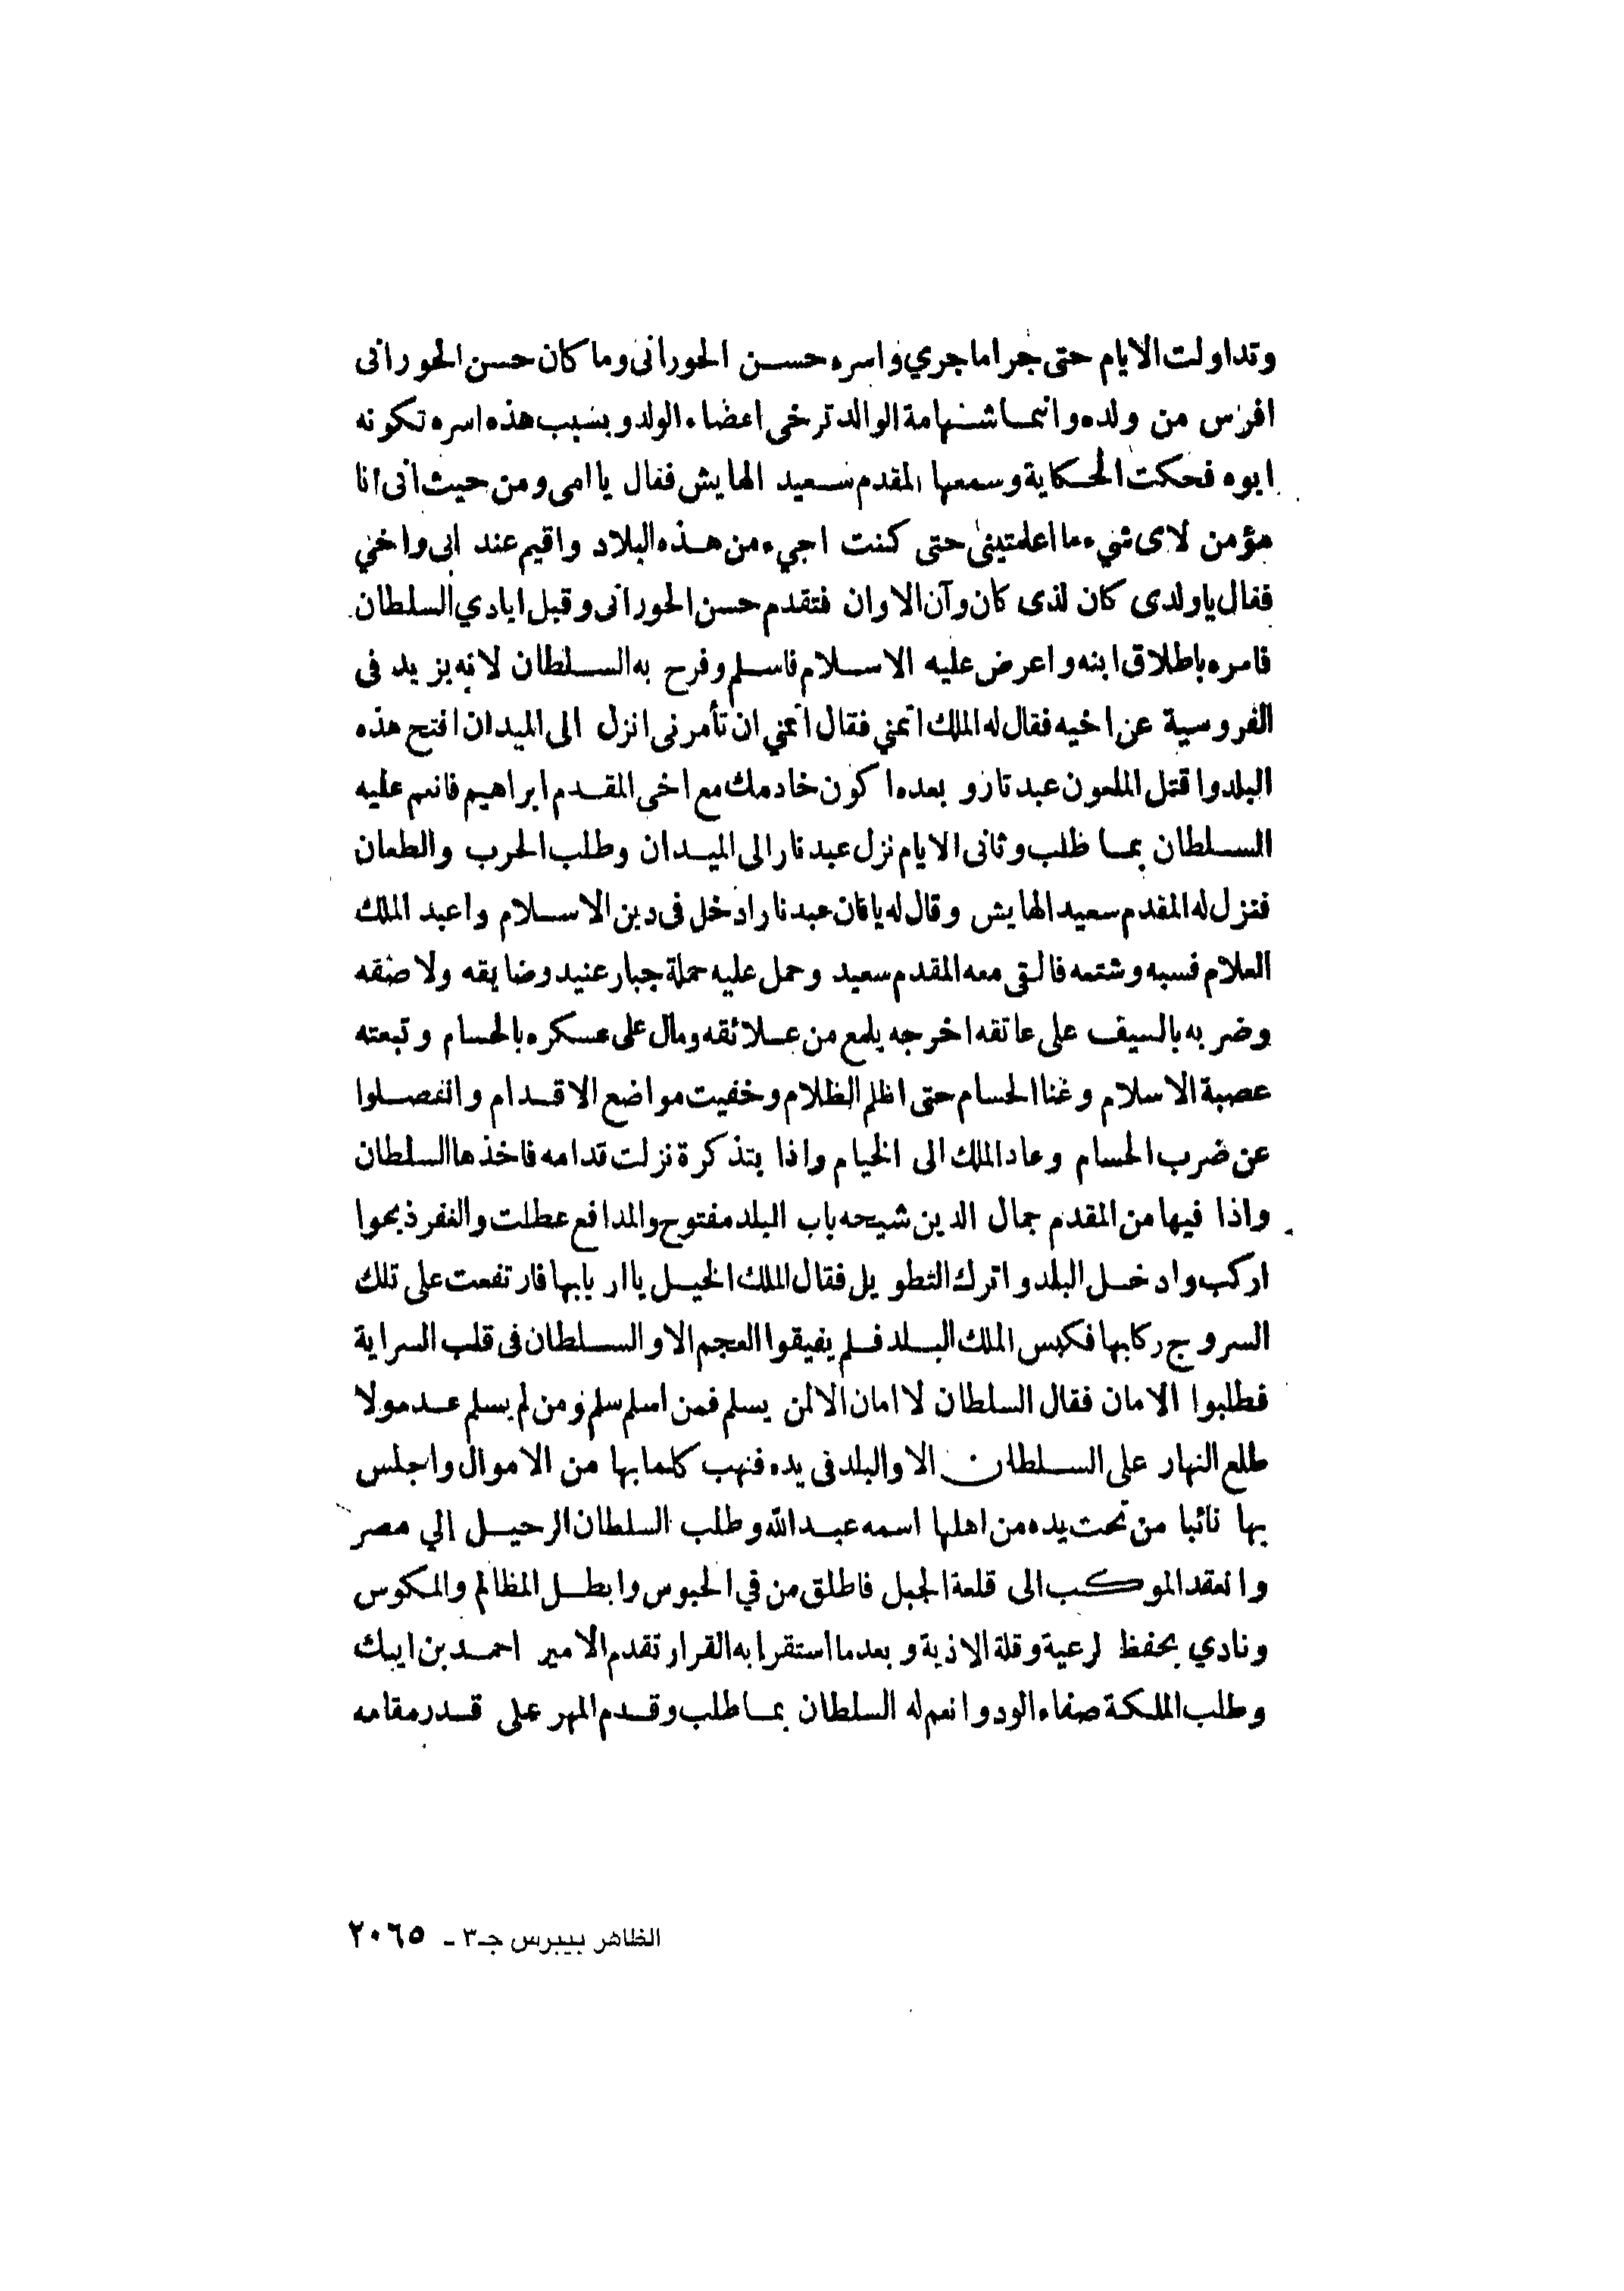 وتداولت الايام حتى جرا ما جري واسره حسن الحورانى وما كان حسن الحورانى
افرس من ولده وانما شهامة الوالد ترخى اعضاء الولد وبسبب هذه اسره تكونه
ابوه فحكت الحكاية وسمعها المقدم سعيد الهايش فقال يا امى ومن حيث انى انا
مؤمن لاى شىء ما اعلمتينى حتى كنت اجيء من هذه البلاد واقيم عند ابى واخي
فقال ياولدى كان لذى كان وآن الاوان فتقدم حسن الحورانى وقبل ايادي السلطان
فامره باطلاق ابنه واعرض عليه الاسلام فاسلم وفرح به السلطان لانه يزيد فى
الفروسية عن اخيه فقال له الملك اتمني فقال اتمني ان تأمرنى انزل الى الميدان افتح هذه
البلد واقتل الملعون عبد نار و بعده اكون خادمك مع اخى المقدم ابراهيم فانعم عليه
السلطان بما طلب وثانى الايام نزل عبد نار الى الميدان وطلب الحرب والطعان
فنزل له المقدم سعيد الهايش وقال له ياقان عبد نار ادخل فى دين الاسلام واعبد الملك
العلام فسبه وشتمه فالتى معه المقدم سعيد وحمل عليه حملة جبار عنيد وضايقه ولاصقه
وضربه بالسيف على عاتقه اخرجه يلمع من علائقه ومال على عسكره بالحسام وتبعته
عصبة الاسلام وغنا الحسام حتى اظلم الظلام وخفيت مواضع الاقدام وانفصلوا
عن ضرب الحسام وعاد الملك الى الخيام واذا بتذكرة نزلت قدامه فاخذها السلطان
واذا فيها من المقدم جمال الدين شيحه باب البلد مفتوح والمدافع عطلت والغفر ذبحوا
اركب وادخل البلد واترك التطويل فقال الملك الخيل ياار بابها فارتفعت على تلك
السروج ركابها فكبس الملك البلد فلم يفيقوا العجم الا والسلطان فى قلب السراية
فطلبوا الامان فقال السلطان لا امان الا لمن يسلم فمن اسلم سلم ومن لم يسلم عدمولا
طلع النهار على السلطان الا والبلد فى يده فنهب كلما بها من الاموال واجلس
بها نائبا من تحت يده من اهلها اسمه عبد الله وطلب السلطان الرحيل الي مصر
وانعقد الموكب الى قلعة الجبل فاطلق من في الحبوس وابطل المظالم والمكوس
ونادي بحفظ لرعية وقلة الاذية وبعدما استقر ابه القرار تقدم الامير احمد بن ايبك
وطلب الملكة صفاء الود وانعم له السلطان بما طلب وقدم المهر على قدر مقامه
الظاهر بيبرس جـ٣ ـ ٢٠٦٥